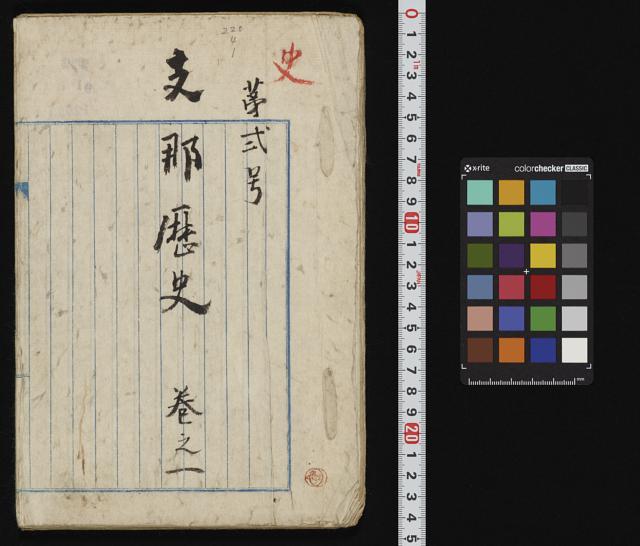 史
第弐号
支那歴史 巻之一
220
4
1
0
1
2
3
4
5
6
7
8
9
10
1
2
3
4
5
6
7
8
9
20
1
2
3
4
5
x-rite
colorchecker CLASSIC
mm